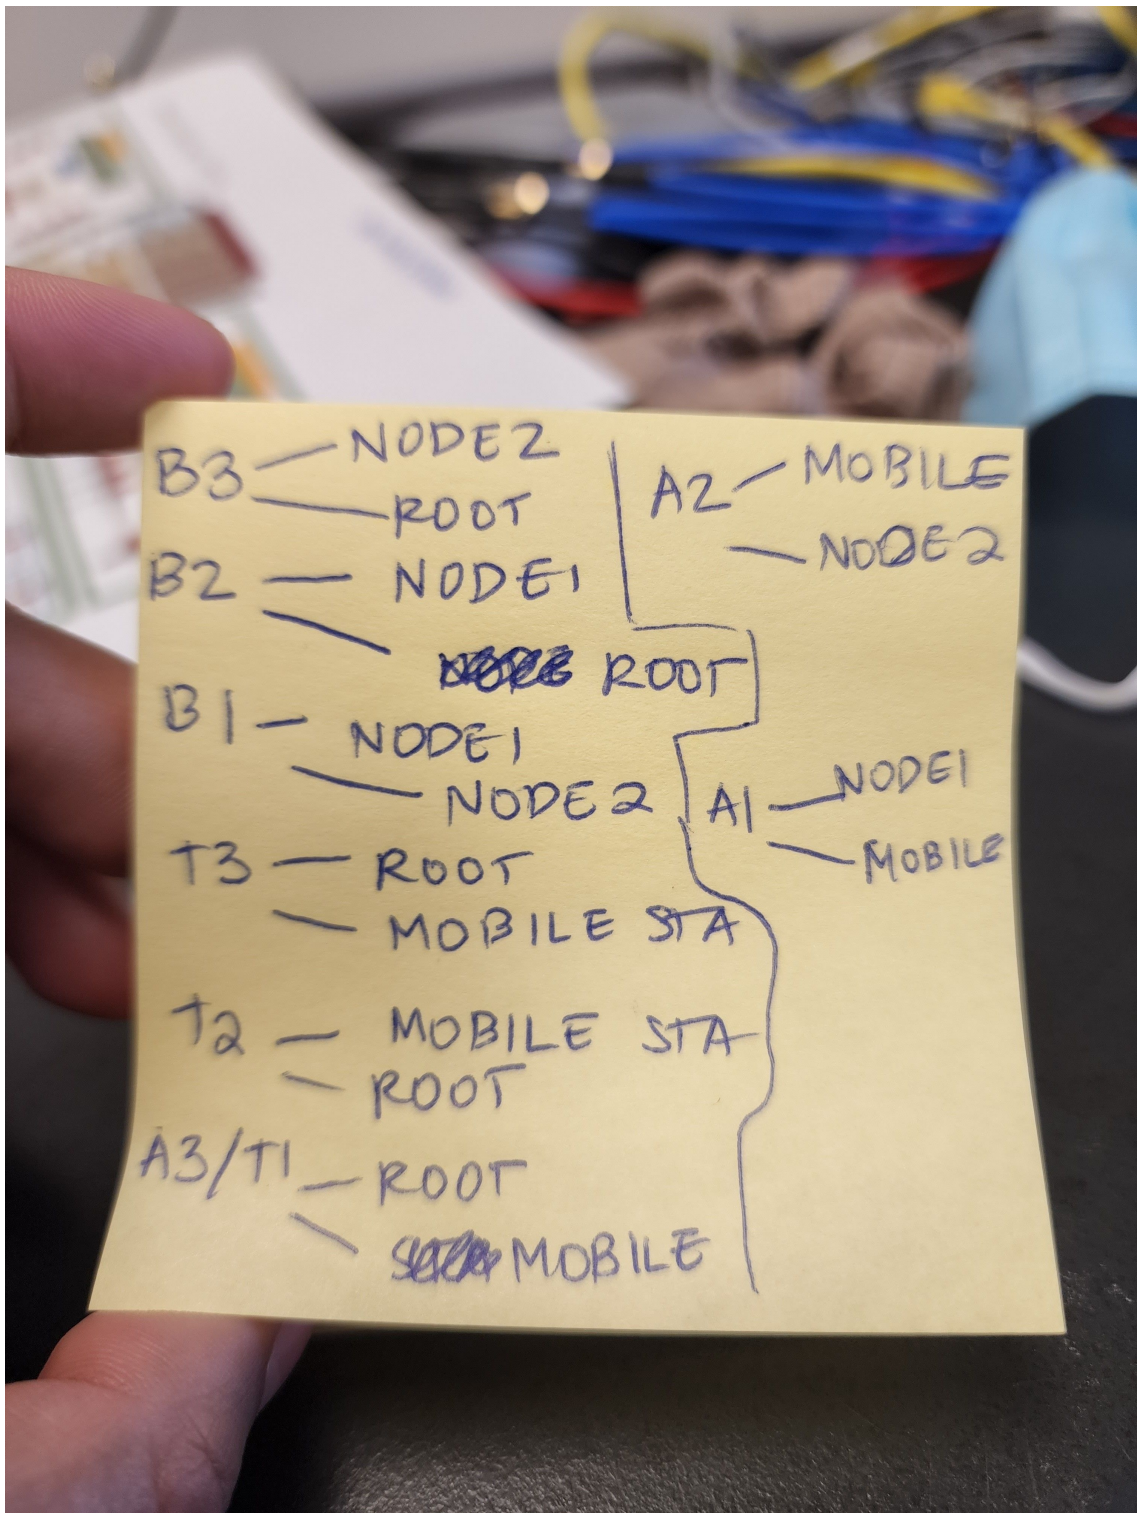 B3 — NODE2
— ROOT
B2 — NODE1
— ROOT
B1 — NODE1
— NODE2
T3 — ROOT
— MOBILE STA
T2 — MOBILE STA
— ROOT
A3/T1 — ROOT
— MOBILE
A2 — MOBILE
— NODE2
A1 — NODE1
— MOBILE